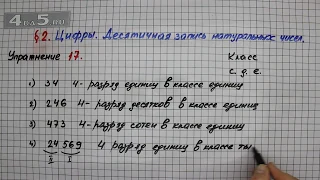 4B5.RU
§2. Цифры. Десятичная запись натуральных чисел.
Упражнение 17.
Класс
с. д. е.
1) 34 4- разряд единиц в классе единиц
2) 246 4- разряд десятков в классе единиц
3) 473 4- разряд сотен в классе единиц
4) 24 569 4 разряд единиц в классе ты
II I